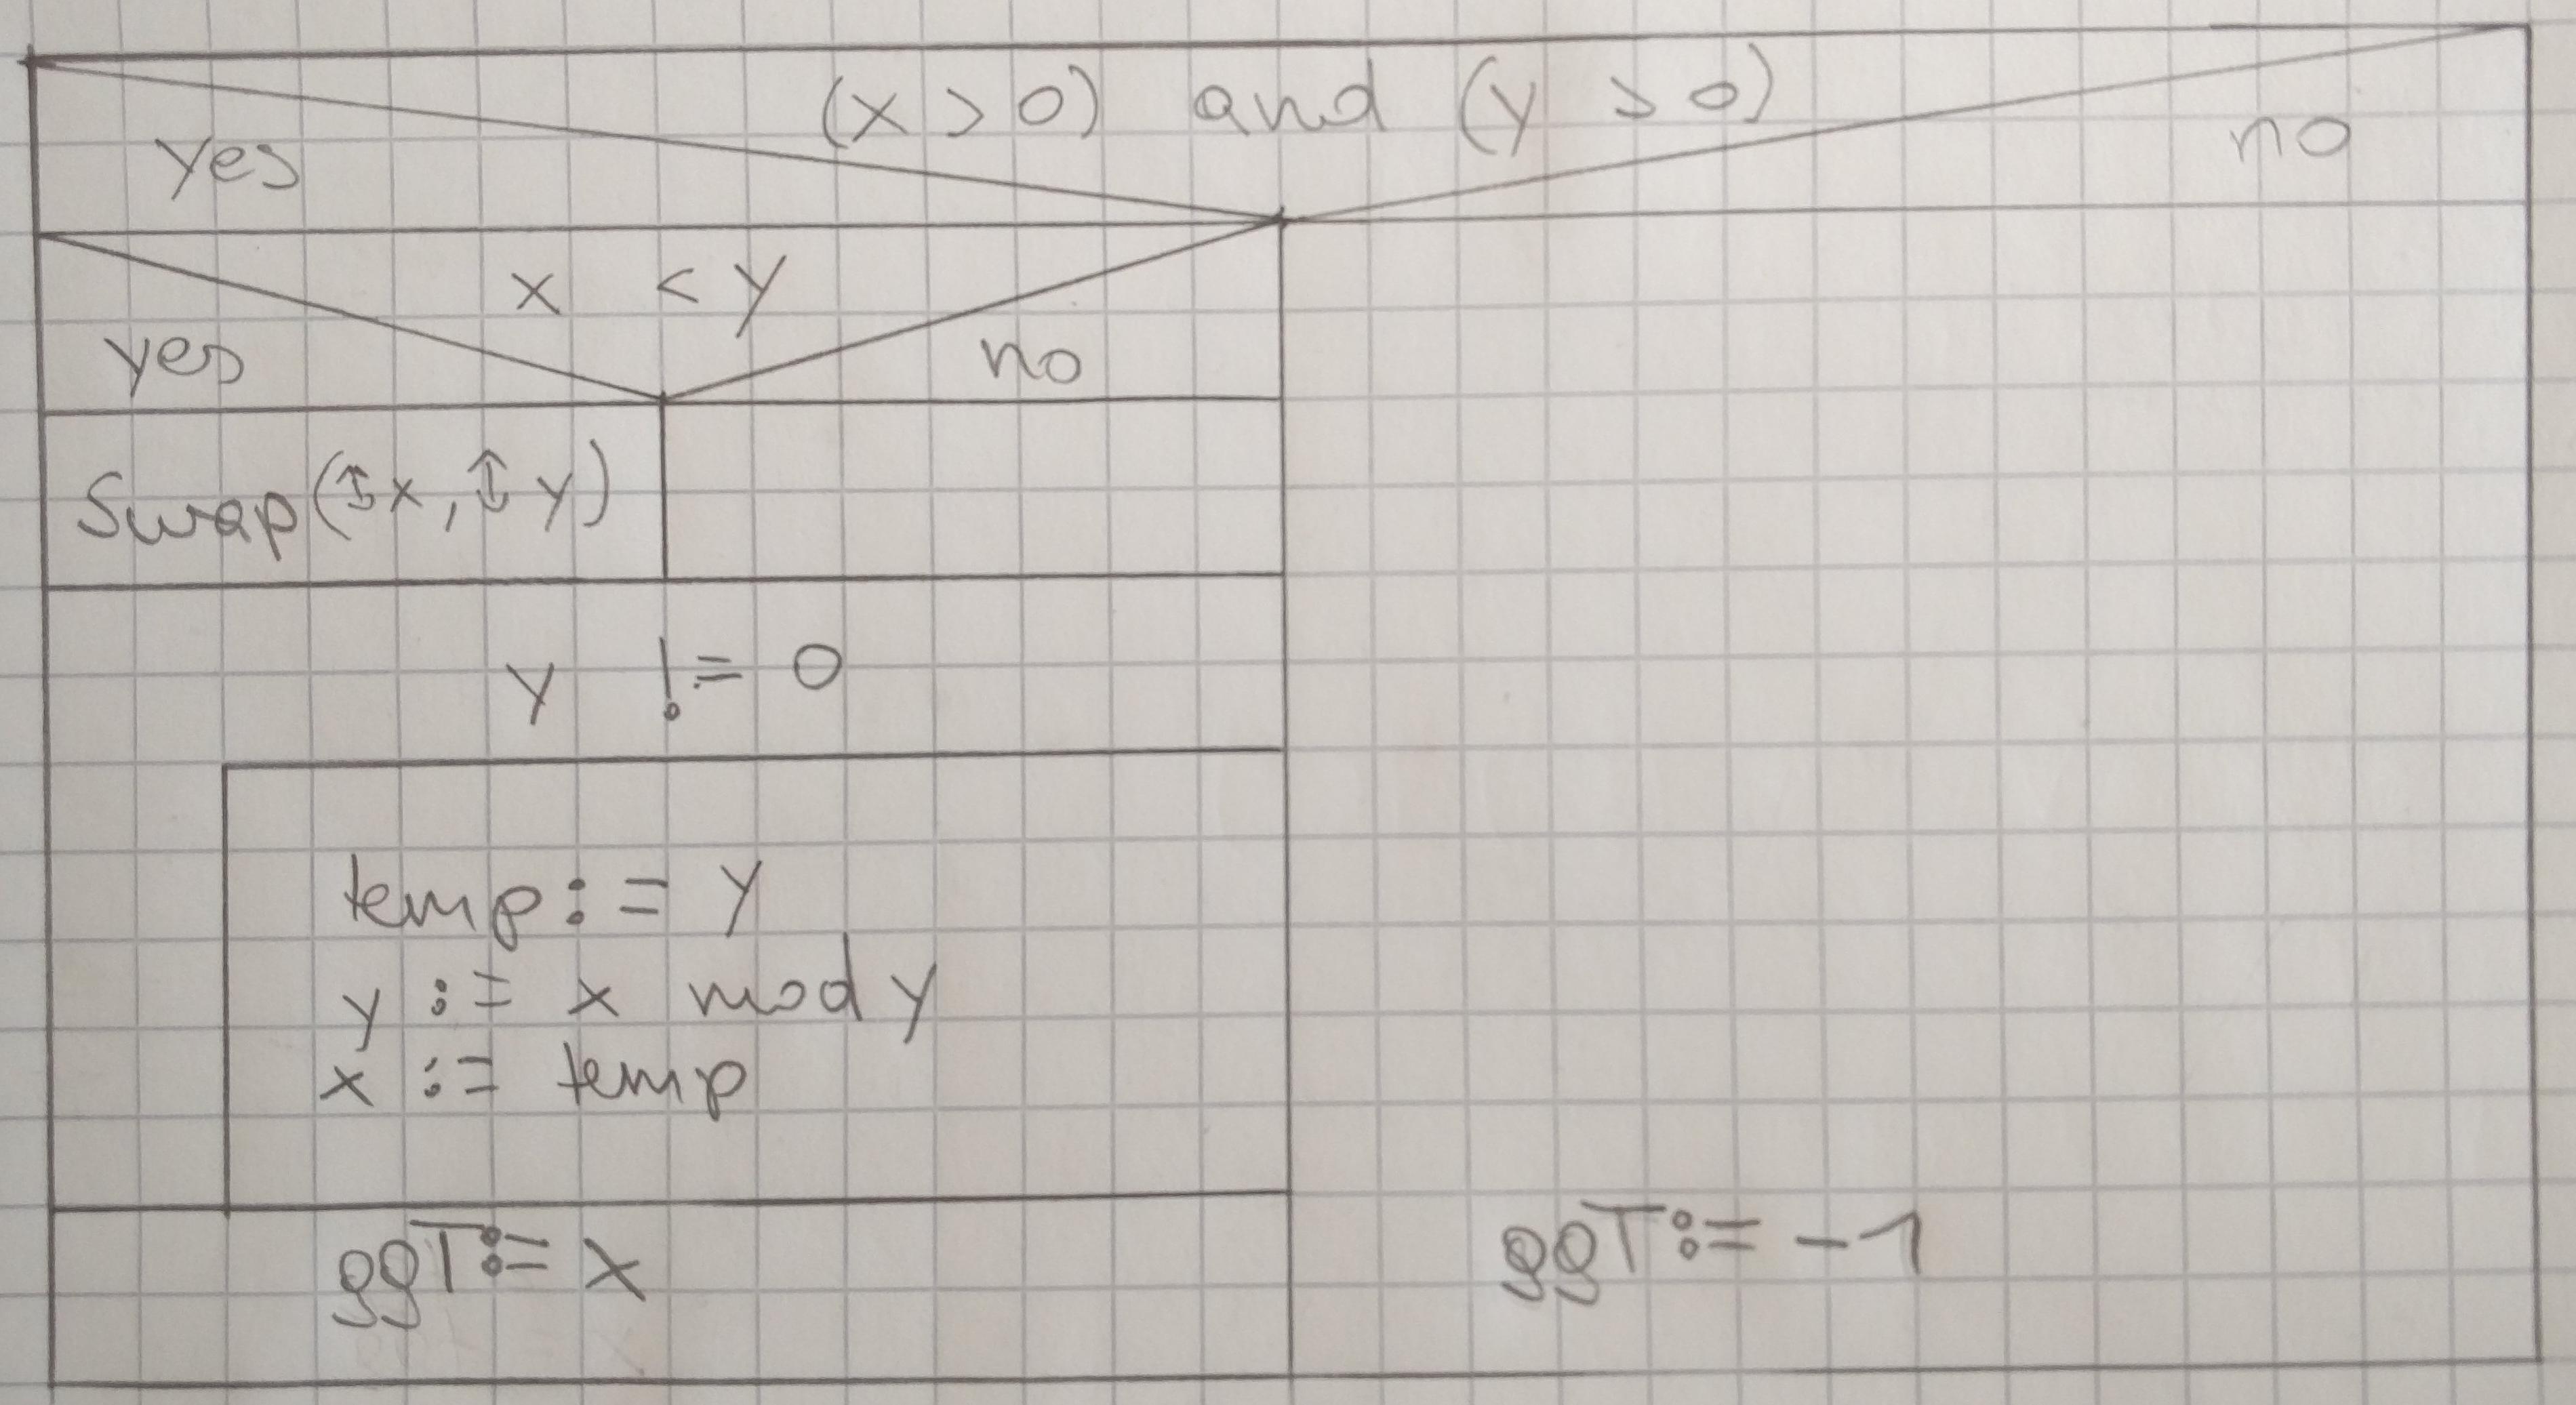 (x > 0) and (y > 0)
yes
no
x < y
yes
no
Swap(↕x, ↕y)
y != 0
temp := y
y := x mod y
x := temp
ggT := x
ggT := -1